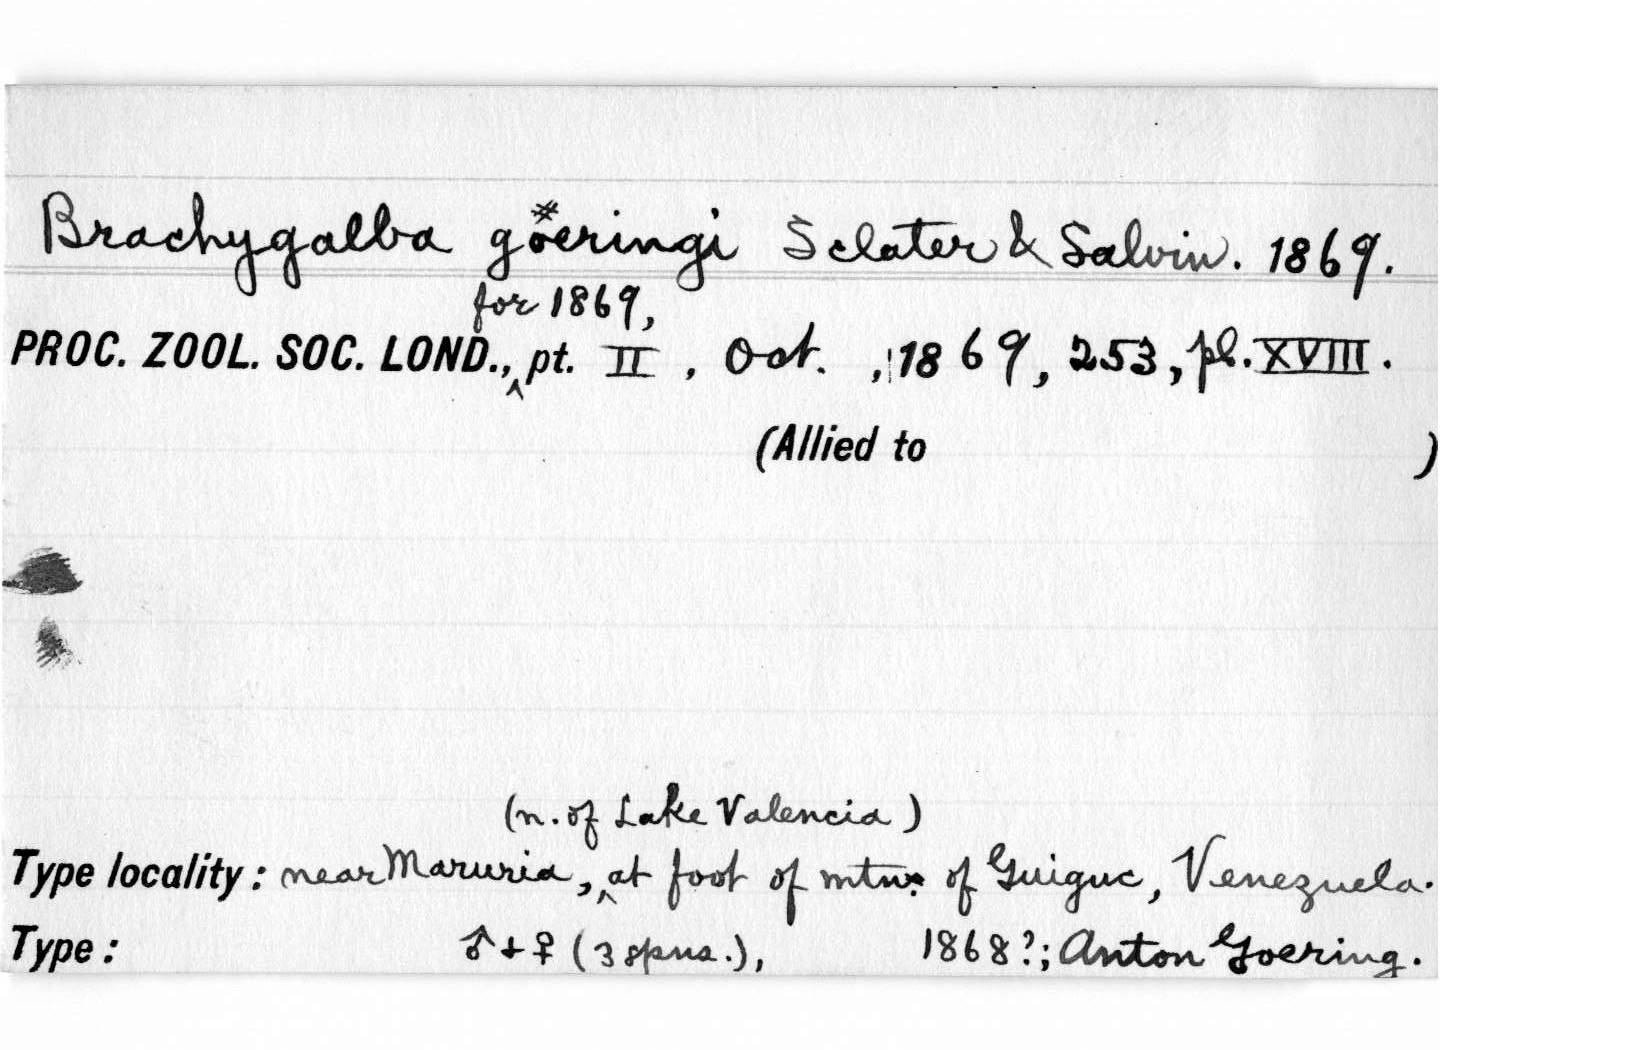 Brachygalba goeringi Sclater & Salvin. 1869.
for 1869,
PROC. ZOOL. SOC. LOND., pt. II, Oct., 1869, 253, pl. XVIII.
(Allied to )
(n. of Lake Valencia)
Type locality: near Maruria, at foot of mtns of Guigue, Venezuela.
Type: ♂ + ♀ (3 spns.), 1868?; Anton Goering.